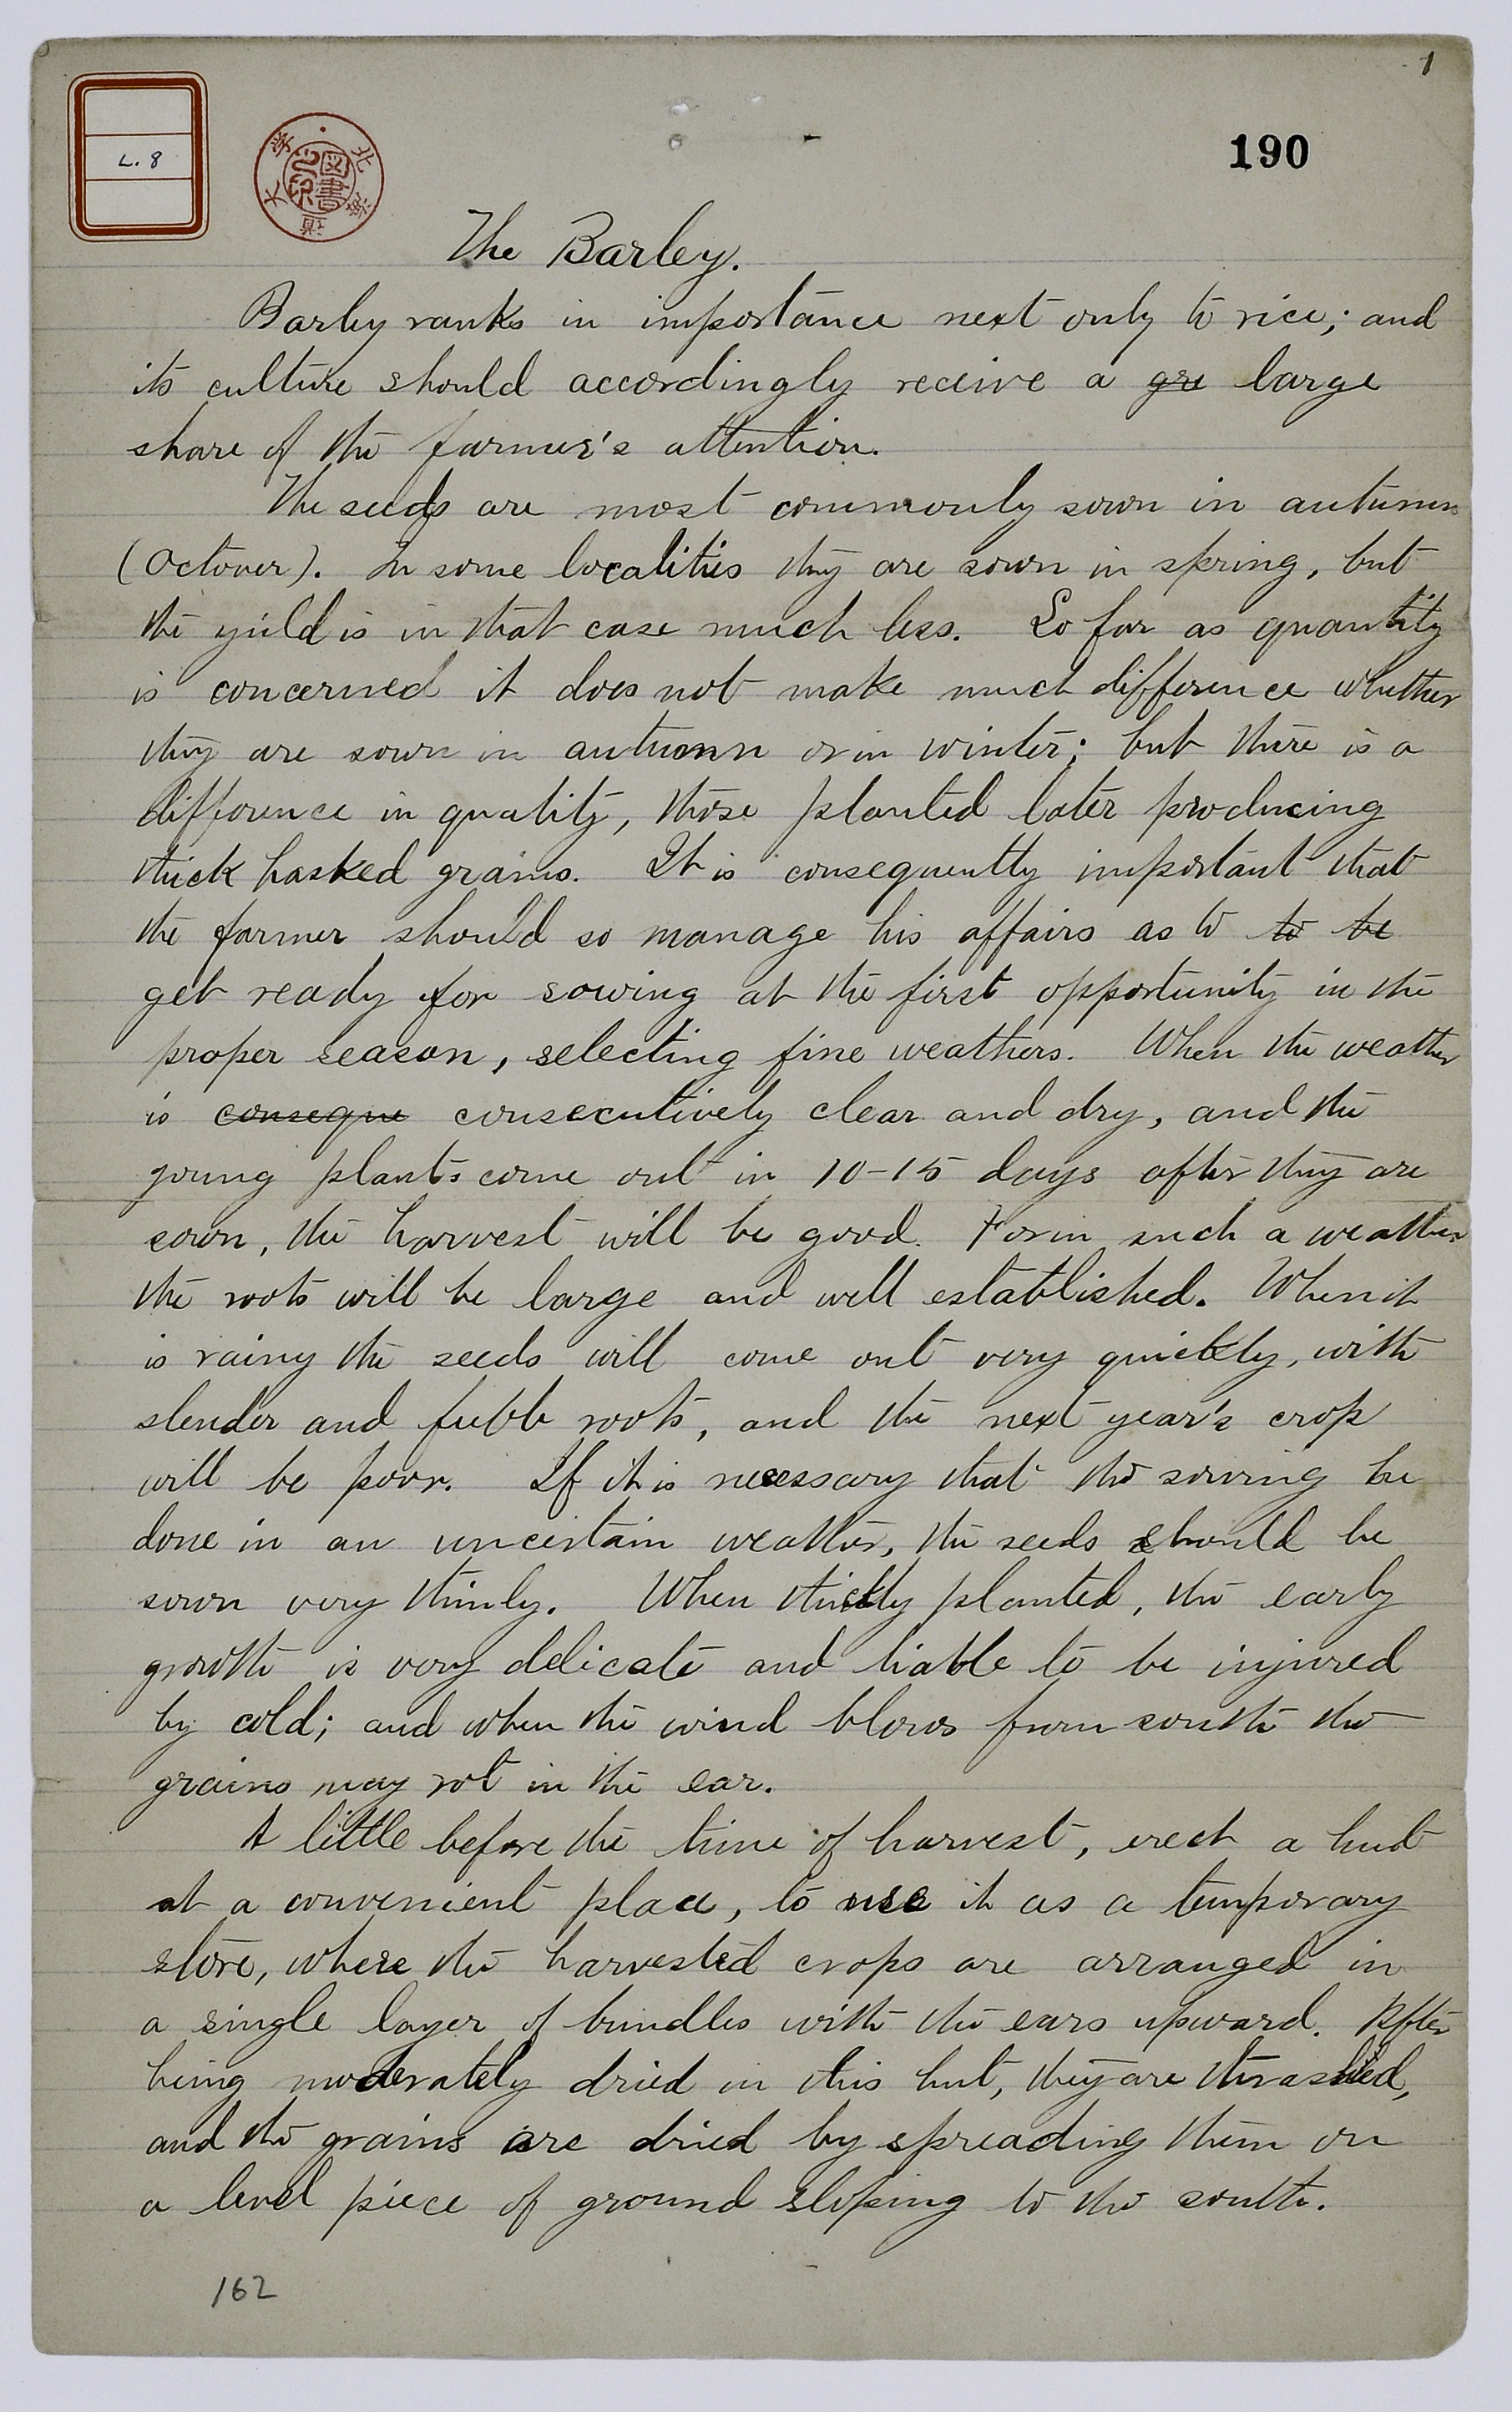 1
190
L. 8
北海道大学
図書之印
The Barley.
Barley ranks in importance next only to rice; and
its culture should accordingly receive a gre large
share of the farmer's attention.
The seeds are most commonly sown in autumn
(Octover). In some localities they are sown in spring, but
the yield is in that case much less. So far as quantity
is concerned it does not make much difference whether
they are sown in autumn or in winter; but there is a
difference in quality, those planted later producing
thick hasked grains. It is consequently important that
the farmer should so manage his affairs as to to be
get ready for sowing at the first opportunity in the
proper season, selecting fine weathers. When the weather
is conseque consecutively clear and dry, and the
young plants come out in 10-15 days after they are
sown, the harvest will be good. For in such a weather
the roots will be large and well established. When it
is rainy the seeds will come out very quickly, with
slender and feeble roots, and the next year's crop
will be poor. If it is necessary that the sowing be
done in an uncertain weather, the seeds should be
sown very thinly. When thickly planted, the early
growth is very delicate and liable to be injured
by cold; and when the wind blows from south the
grains may rot in the ear.
A little before the time of harvest, erect a hut
at a convenient place, to use it as a temporary
store, where the harvested crops are arranged in
a single layer of bundles with the ears upward. After
being moderately dried in this hut, they are thrashed,
and the grains are dried by spreading them on
a level piece of ground sloping to the south.
162